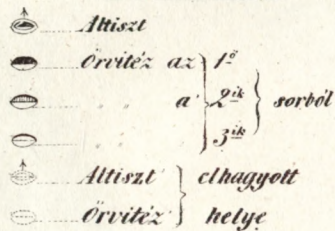 Altiszt
Őrvitéz az 1ő
" " a' 2ik sorból
" " 3ik
Altiszt elhagyott
Őrvitéz helye